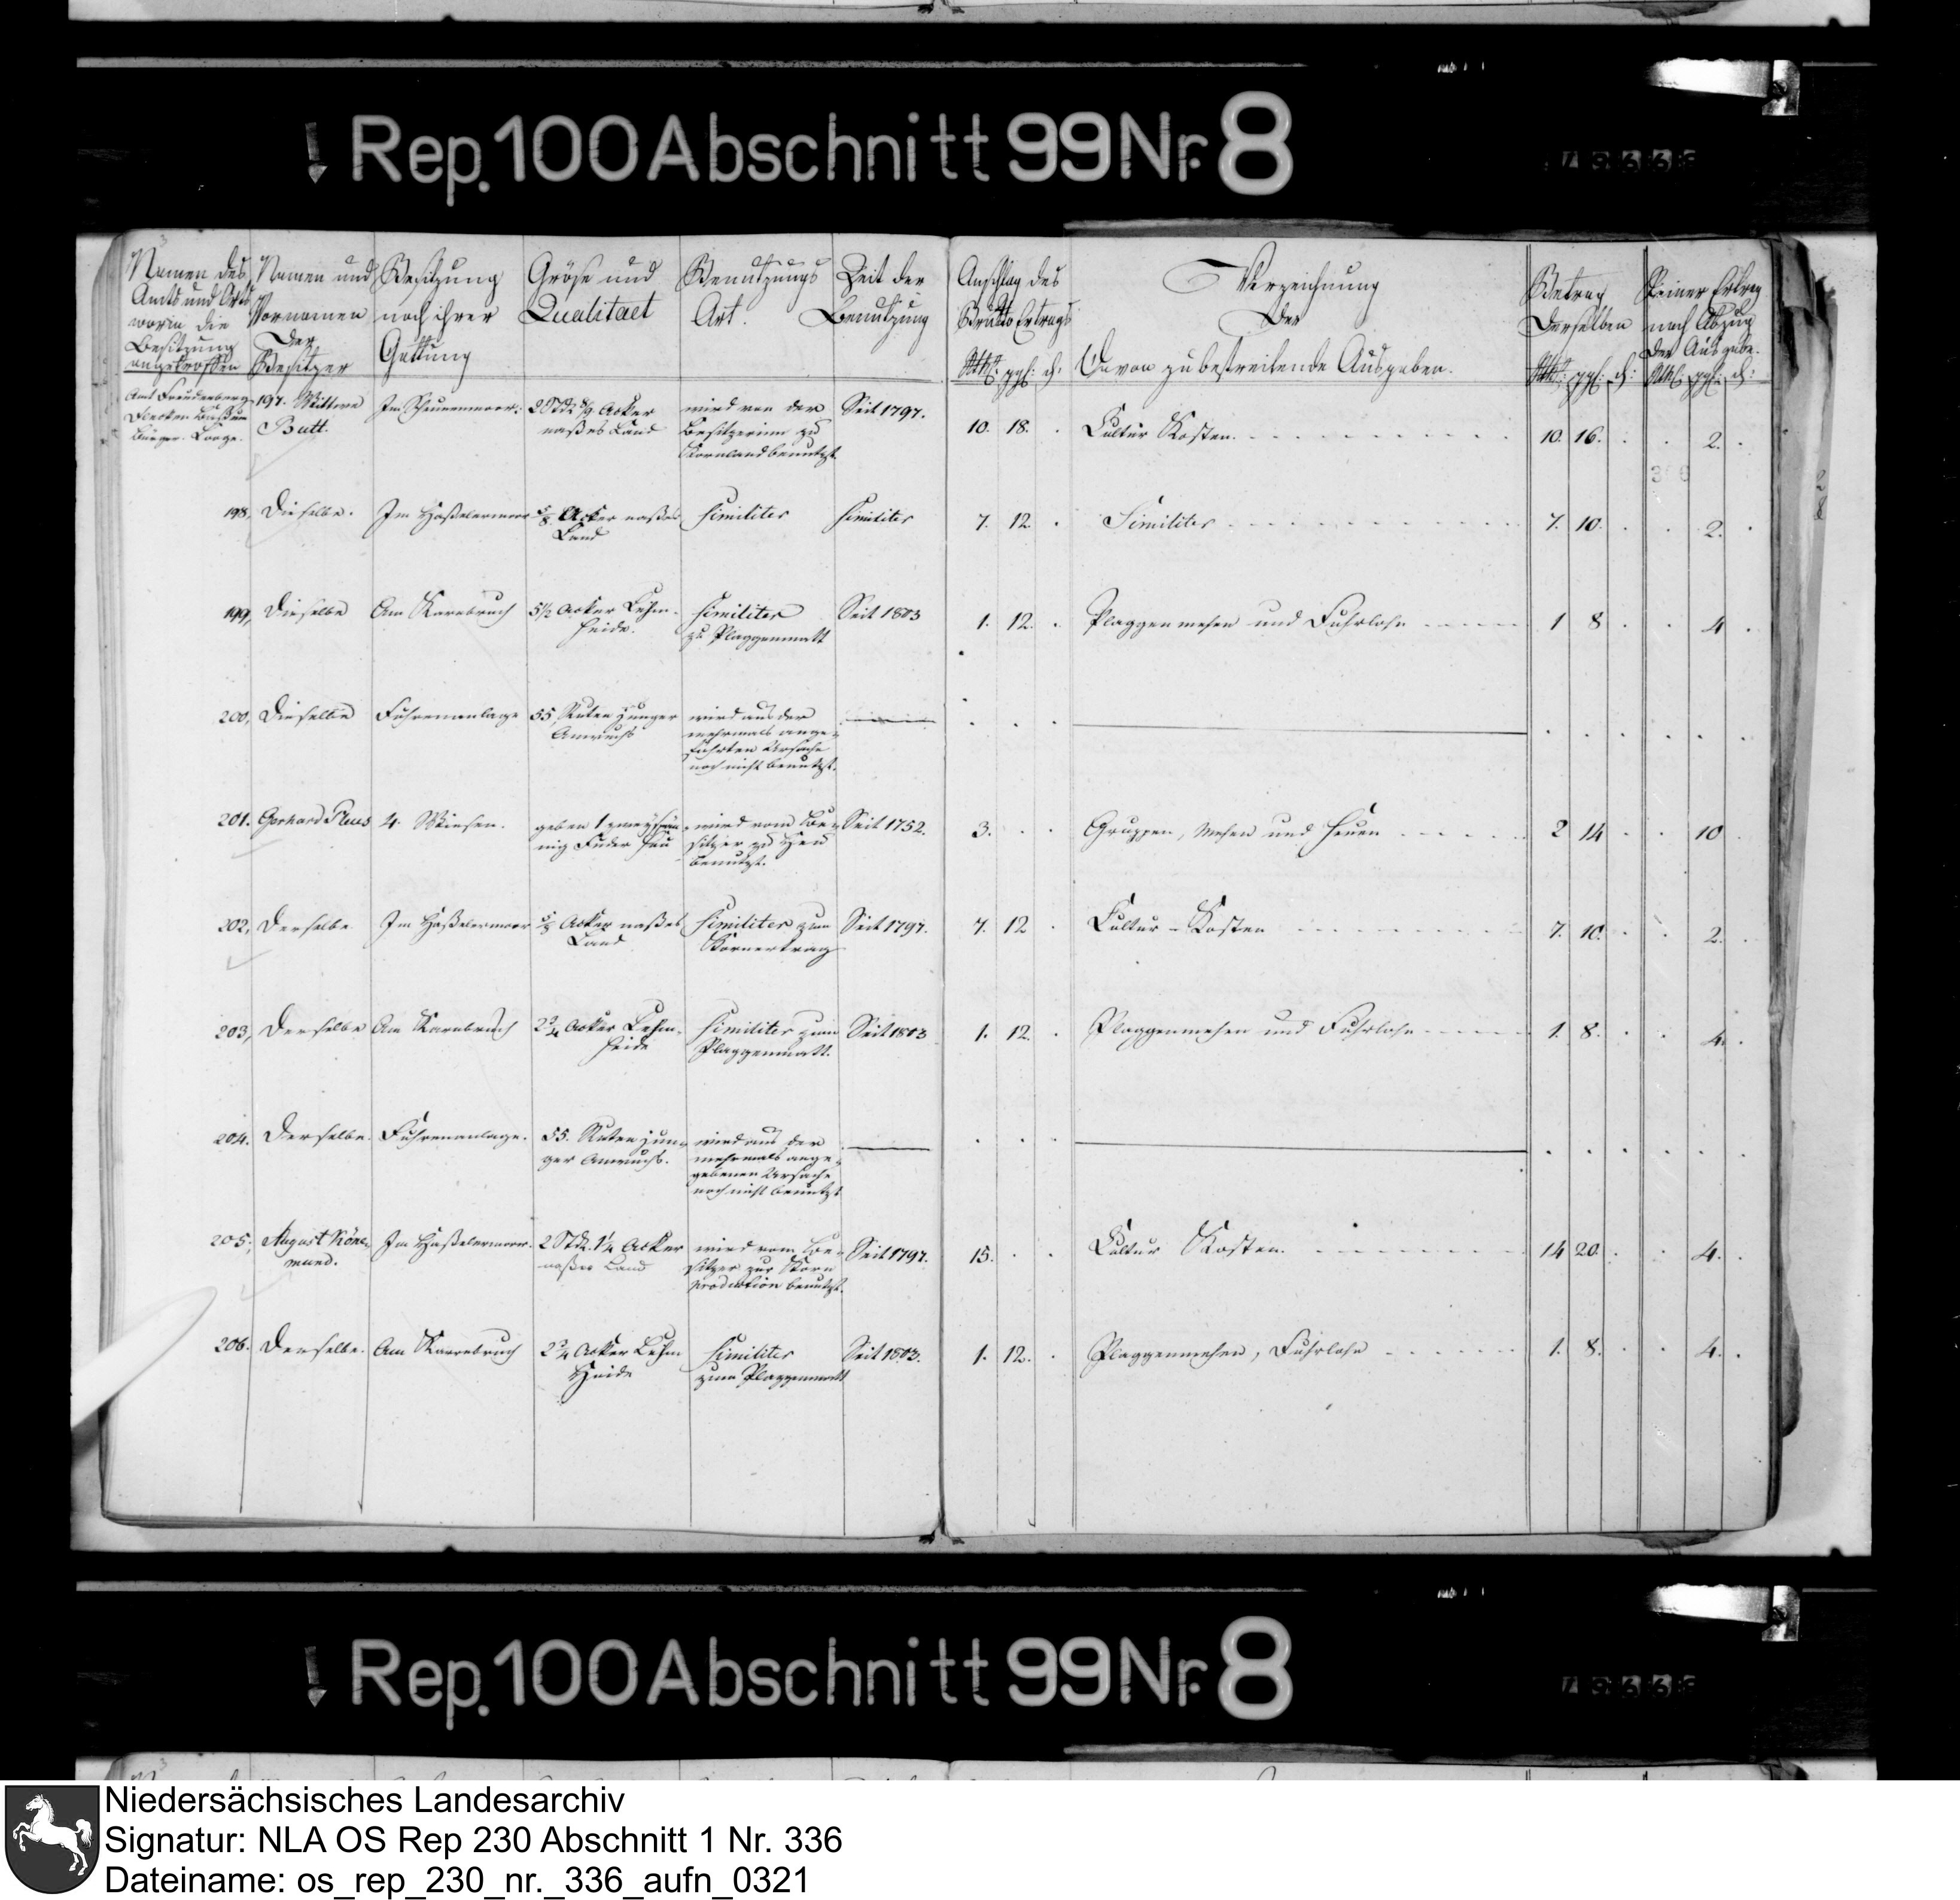 Rep. 100 Abschnitt 99 Nr. 8
Namen des Amts und Orts worin die Besitzung angetroffen
Namen und Vornamen der Besitzer
Besitzung nach ihrer Gattung
Gröse und Qualitaet
Benutzungs Art.
Zeit der Benutzung
Anschlag des Brutto Ertrags
Rthlr: ggl: d:
Verzeichnung
der
davon zu bestreitende Ausgaben.
Betrag derselben
Rthlr: ggl: d:
Reiner Ertrag nach Abzug der Ausgabe.
Rthlr: ggl: d:
Amt Freudenberg
Flecken Bassum
197. Wittwe Butt. Im Scheunenmoor. 2 Stk Acker naßes Land wird von der Besitzerinn zu Kornland benutzt. Seit 1797. 10. 18. Cultur Kosten. 10. 16. 2.
198, Dieselbe. Im Haßelermoor 5/8 Acker naßes Land similiter similiter 7. 12. Similiter 7. 10. 2.
199, Dieselbe Am Karrebruch 5½ Acker Lehm heide. similiter zu Plaggenmatt Seit 1803 1. 12. Plaggenmehen und Fuhrlohn 1 8 4
200, Dieselbe Fuhrenanlage 55 Ruten junger Anwuchs wird aus der mehrmals angeführten Ursache noch nicht benutzt.
201. Gerhard Plus 4. Wiesen. geben 1 zweyspännig Fuder heu wird vom Besitzer zu Heu benutzt. Seit 1752. 3. Gruppen, Mehen und heuen 2 14 10
202, Derselbe Im Haßelermoor 5/8 Acker naßes Land similiter zum Kornertrag Seit 1797. 7. 12 Cultur-Kosten 7. 10. 2.
203, Derselbe Am Karrebruch 2¾ Acker Lehm heide similiter zum Plaggenmatt. Seit 1803 1. 12. Plaggenmehen und Fuhrlohn 1. 8. 4.
204. Derselbe. Fuhrenanlage. 55. Ruten junger Anwuchs. wird aus der mehrmals angegebenen Ursache noch nicht benutzt
205, August Könemund. Im Haßelermoor. 2 Stk. 1¼ Acker naßes Land wird vom Besitzer zur Korn production benutzt. Seit 1797. 15. Cultur Kosten. 14 20. 4.
206. Derselbe. Am Karrebruch 2¾ Acker Lehm Heide similiter zum Plaggenmatt Seit 1803. 1. 12. Plaggenmehen, Fuhrlohn 1. 8. 4.
Rep. 100 Abschnitt 99 Nr. 8
Niedersächsisches Landesarchiv
Signatur: NLA OS Rep 230 Abschnitt 1 Nr. 336
Dateiname: os_rep_230_nr._336_aufn_0321